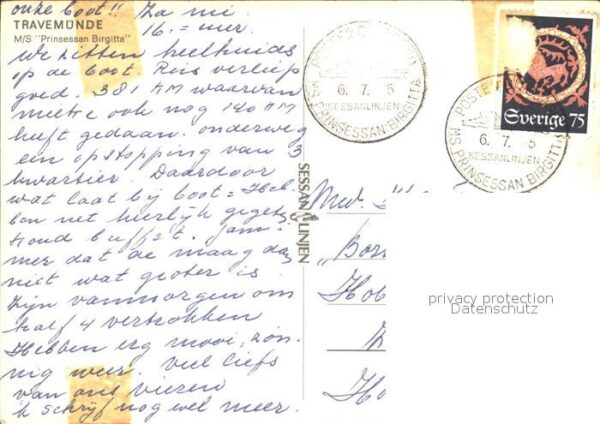 onze boot!! Za mi.
TRAVEMÜNDE
16.= uur.
M/S "Prinsessan Birgitta"
We zitten heelhuids
op de boot. Reis verliep
goed. 381 KM waarvan
mietre ook nog 120 KM
heeft gedaan. onderweg
een opstopping van 3
kwartier. Daardoor
wat laat bij boot. = Heb-
ben net heerlijk geget.
koud buffet. Jam-
mer dat de maag dan
niet wat groter is
Zijn vanmorgen om
half 4 vertrokken
Hebben erg mooi, zon-
nig weer. Veel liefs
van ons vieren
ik schrijf nog wel meer.
SESSAN LINJEN
POSTED
6. 7. 5
SESSANLINJEN
MS PRINSESSAN BIRGITTA
POSTED
6. 7. 5
SESSANLINJEN
MS PRINSESSAN BIRGITTA
Sverige 75
"Bor
Hob
privacy protection
Datenschutz